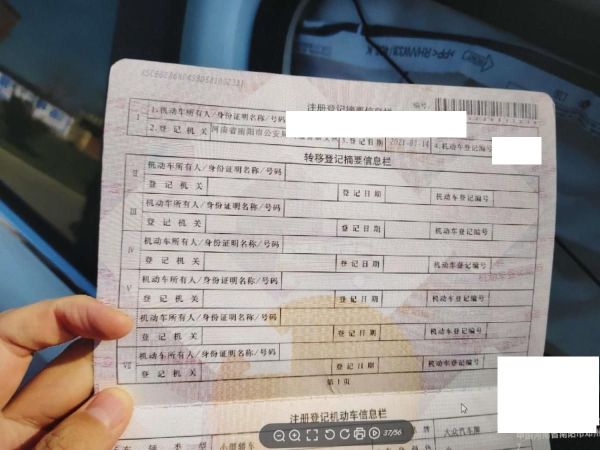 注册登记摘要信息栏 编号:
I 1.机动车所有人/身份证明名称/号码
2.登记机关 河南省南阳市公安局 3.登记日期 2021-01-14 4.机动车登记编号
转移登记摘要信息栏
II 机动车所有人/身份证明名称/号码
登记机关 登记日期 机动车登记编号
III 机动车所有人/身份证明名称/号码
登记机关 登记日期 机动车登记编号
IV 机动车所有人/身份证明名称/号码
登记机关 登记日期 机动车登记编号
V 机动车所有人/身份证明名称/号码
登记机关 登记日期 机动车登记编号
机动车所有人/身份证明名称/号码
登记机关 登记日期 机动车登记编号
VII 机动车所有人/身份证明名称/号码
登记机关 登记日期 机动车登记编号
第1页
注册登记机动车信息栏
37/56